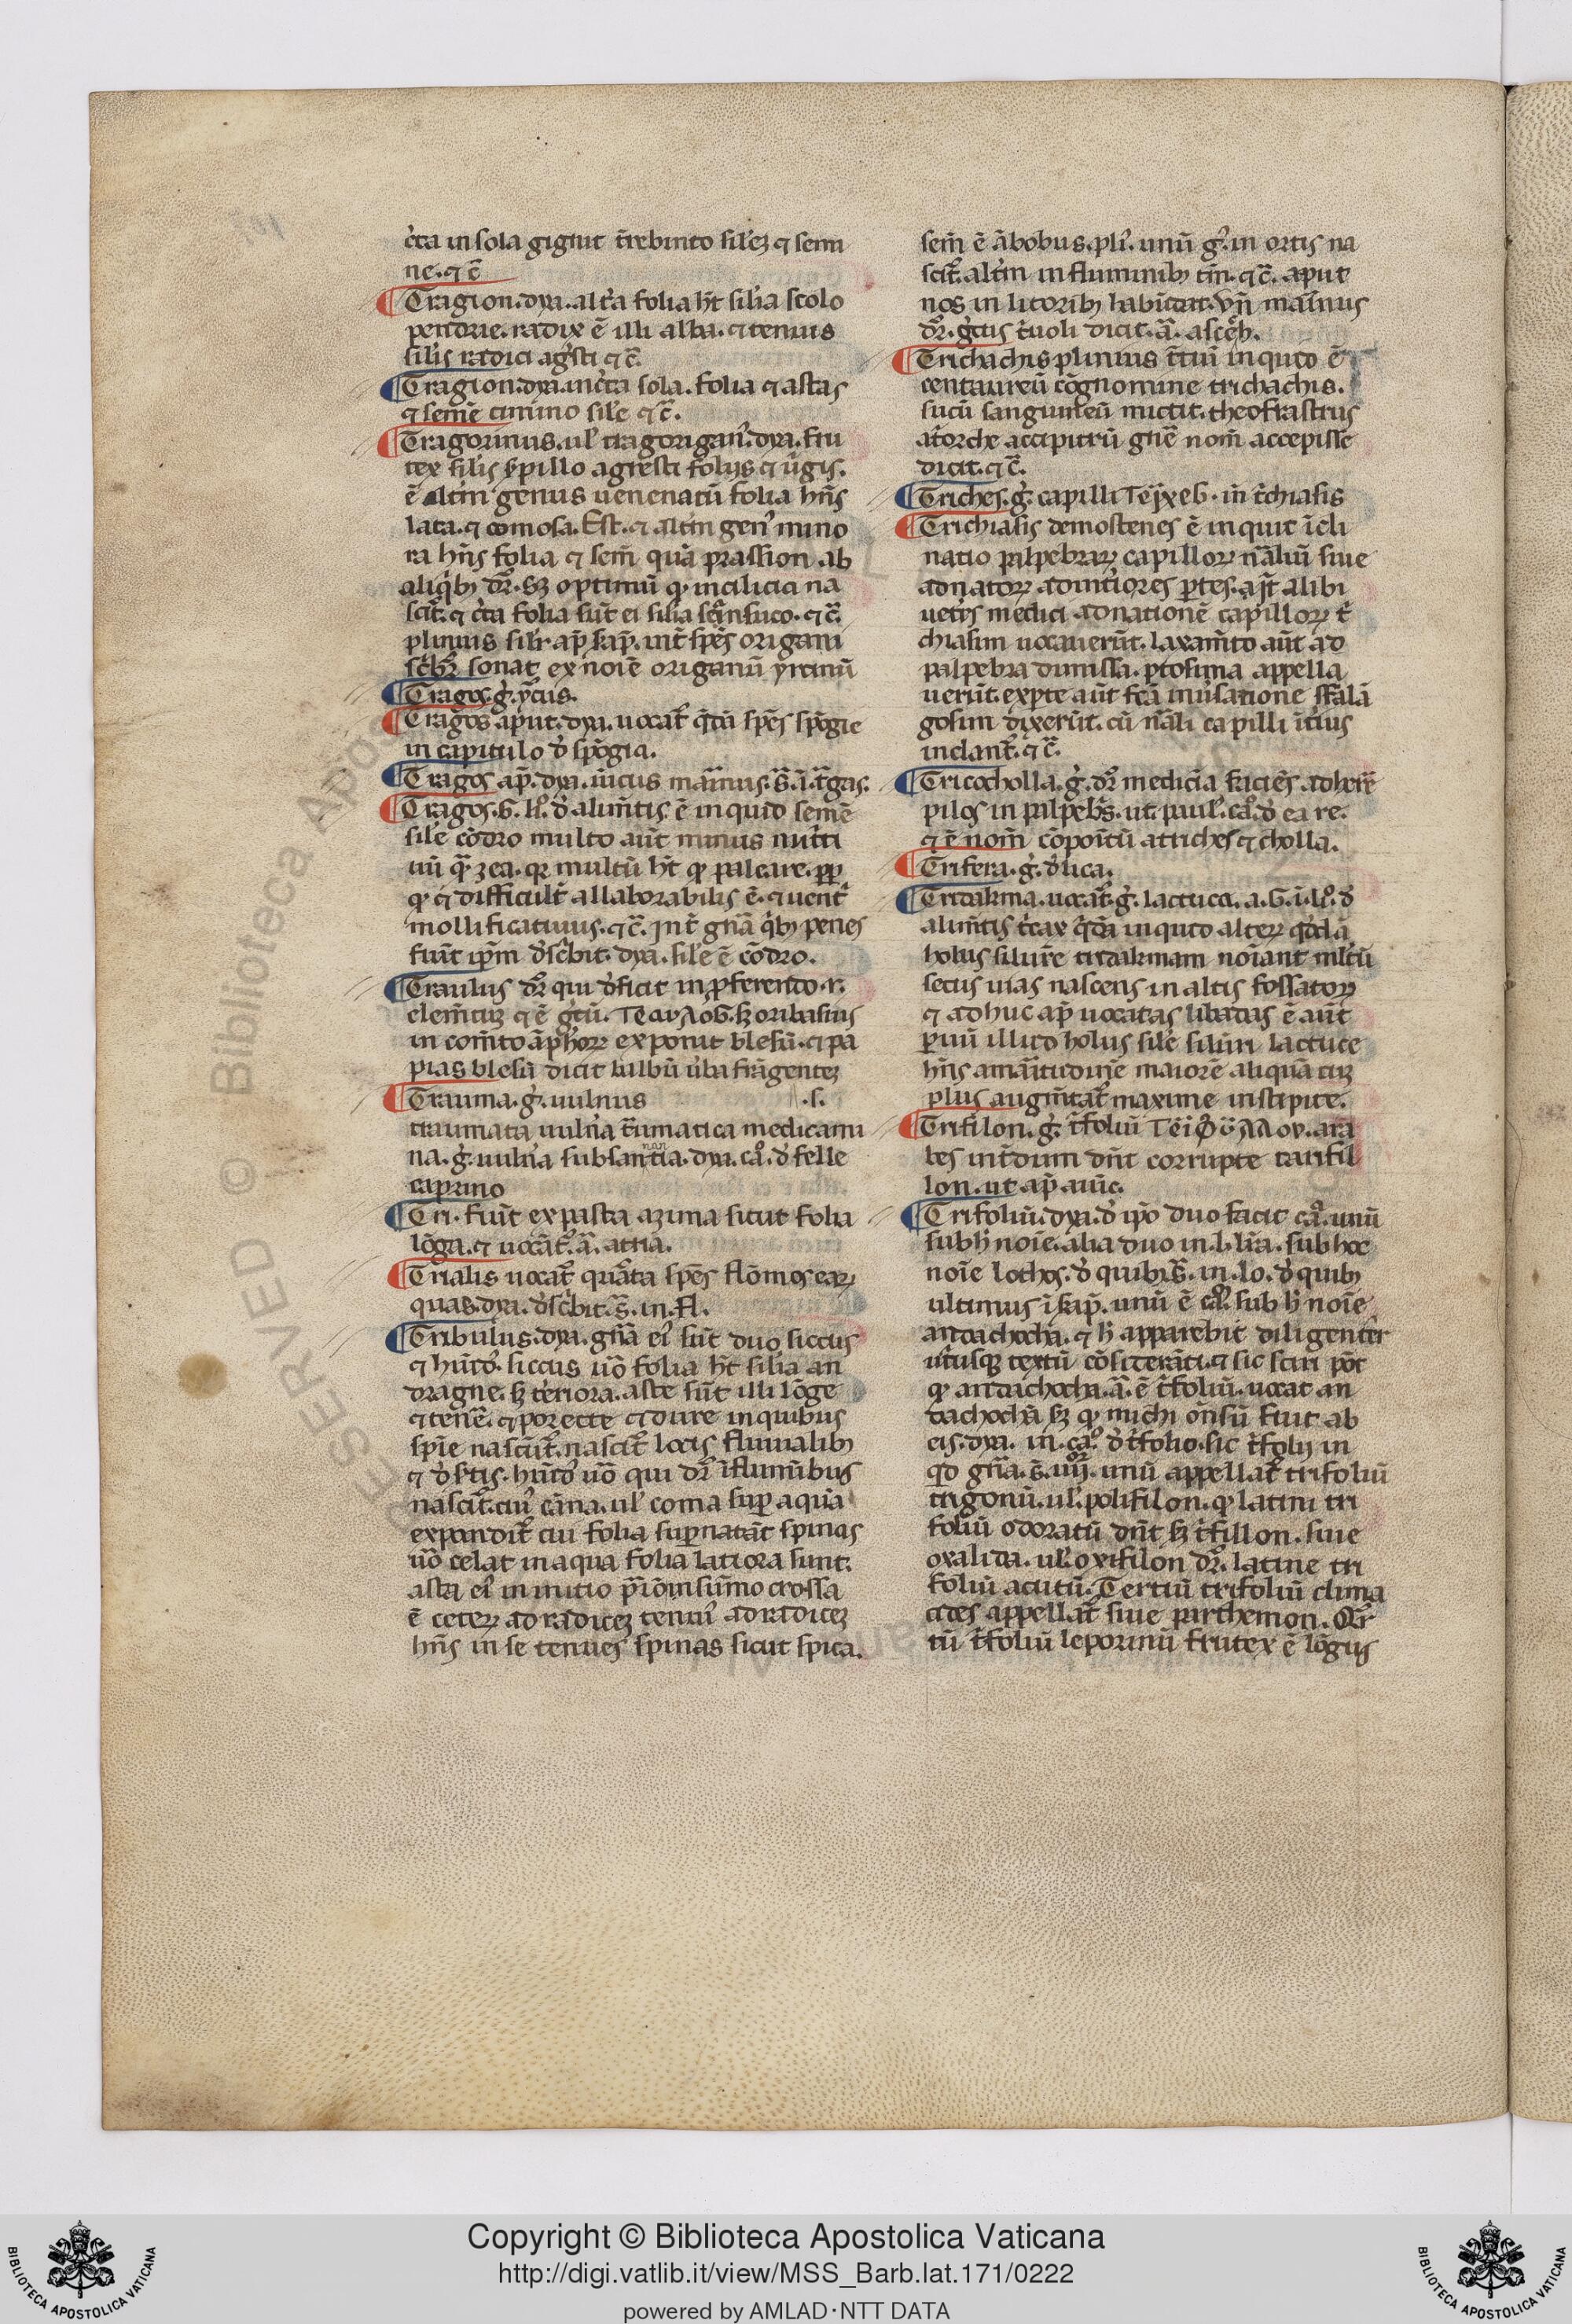 c̄ta in sola gignit t̄rebinto sil'eʒ ⁊ semi
ne. ⁊ c̄
Tragion. dya. alt'a folia h̄t sil'ia scolo
pendrie. radix ē illi alba. ⁊ tenuis
sil'is radici ag̾sti ⁊ c̄.
Tragion. dya. in c̾ta sola. folia ⁊ astas
⁊ semē cimino sil'e ⁊ c̄.
Tragorinus. ul' tragorigan̄. dya. fru
tex sil'is s̾pillo agresti folijs ⁊ ūgis.
ē alt̄m genus uenenatū folia hn̄s
lata. ⁊ comosa. Est. ⁊ alt̄m gen̾ mino
ra hn̄s folia ⁊ sem̄ quā prassion ab
aliq̾bꝫ dr̄. Sꝫ optimū qꝫ in cilicia na
scit̄. ⁊ c̄ta folia sūt ei
plinius sil'r ap̄ kap̄. int̄ sp̄es origani
sonat ex noīe origanū yrcinū
Tragos. g̾. yrcus.
Tragos aput. dya. uocat̄ q̾rtū sp̄es spōgie
in capitulo d̾ spōgia.
Tragos ap̄. dya. iūcus mar̄inus. s̄. i. t̄gas.
Tragos. G. li̊. d̾ alim̄tis. ē inquid semē
sil'e cōdro multo aūt minus nut̾ti
uū q̄ zea. qꝛ multū h̄t qꝫ paleare. ꝓp̄
qꝫ ⁊ difficult̄ allaborabilis ē. ⁊ uent̄
mollificatiuus. ⁊ c̄. Int̄ gn̄a q̾bꝫ penes
fuīt ip̄m d̾sc̾bit. dya. sil'e ē cōdro.
Traulus dr̄ qui d̾ficit in ꝓferendo. r.
elem̄tuꝫ ⁊ ē g̾cū. Τεαυλοϭ. sꝫ oribasius
in com̄to āphorꝫ exponit blesū. ⁊ pa
pias blesū dicit balbū ūba frāgenteꝫ
Trauma. g̾. uulnus .s.
traumata uuln̾a t̄umatica medicami
na. g̾. uuln̾a subsantia. dya. ca̾. d̾ felle
caprino
Tri. fiūt ex pasta azima sicut folia
lōga. ⁊ uocāt̄. ā. atria.
Trialis uocat̄ quārta sp̄es flōmos earꝫ
quas. dya. d̾sc̾bit. s̄. in. fl.
Tribulus. dya. gn̄a ei̾ sūt duo siccus
⁊ hūid̾. siccus uō folia h̄t sil'ia an
dragne. sꝫ t̾eriora. aste sūt illi lōge
⁊ tenē. ⁊ porecte ⁊ dure in quibus
spīe nascūt̄. nascit̄ locis fluuialibꝫ
⁊ d̾ s̾tis. hūid̾ uō qui dr̄ ī fluminibus
nascit̄. cui̾ cāna. ul' coma sup̄ aquā
expandit̄ cui folia sup̄natāt spinas
uō celat in aqua folia latiora sunt.
asta ei̾ in initio in sūmo crossa
ē ceterꝫ ad radiceꝫ tenui̾ ad radiceꝫ
hn̄s in se tenues spinas sicut spica.
sem̄ ē ābobus. pli̾. unū g̾. in ortis na
scit̄. alt̄m in fluminibꝫ tm̄. ⁊ c̄. aput
nos in litoribꝫ
dr̄. g̾cus t̾uoli dicit. ā.
Trichachis plinius t̄tiū inquid ē
centaureū cōgnomine trichachis.
sucū sanguineū mictit. theofrastus
atorche accipitrū gn̄e nom̄ accepisse
dicit. ⁊ c̄.
Triches. g̾. capilli Τεϳχεϭ. in t̾chiasis
Trichiasis demostenes ē inquit īcli
natio palpebrarꝫ capillorꝫ nāliū siue
adnatorꝫ ad int̾iores ꝑtes. ait̄ alibi
uet̾is medici adnationē capillorꝫ t̾
chiasim uocauerūt. laxam̄to aūt ad
palpebra dimissa. ptosima appella
uerūt. ex ꝑte aūt
gosim dixerūt. cū nāli capilli īt̾ius
inclant̄. ⁊ c̄.
Tricocholla. g̾. dr̄ medicīa faciēs adhere
pilos in palpeb̾s. ut. paul̾. ca̾. d̾ ea re.
⁊ ē nom̄ cōpoītū a triches ⁊ cholla.
Trifera. g̾. d̾lica.
Tridakma. uocat̄. g̾. lactuca. a. G. ī. li̊. d̾
alim̄tis t̾cax q̾dā inquid alterꝫ
holus silur̄e tridakmam noīant m̄ltū
secus uias nascens in altis fossatorꝫ
⁊ adhuc ap̄ uocatas libadas ē aūt
ꝑuū illud holus sil'e siluri lactuce
hn̄s amāritudinē maiorē aliquātuꝫ
plus augm̄tat̄ maxime in stipite.
Trifilon. g̾. t̄foliū ΤεΪΦΫΛΛον. ara
bes int̄dum dn̄t corrupte tarifil
lon. ut ap̄ auic̄.
Trifoliū. dya. d̾ ip̄o duo facit ca̾. unū
sub h̄ noīe. alia duo in. l. līa. sub hoc
noīe lothos. d̾ quibꝫ. s̄. in. lo. d̾ quibꝫ
ultimus ī kap̄. unū ē ca̾. sub h̄ noīe
andachochā. ⁊ h̄ apparebit diligenter
ut̾usqꝫ textū cōsiderāti. ⁊ sic sciri pōt
qꝫ andachocha. ā. ē t̄foliū. uocat an
dachochā sꝫ qꝫ michi ōnsū fuit ab
eis. dya. in. ca̾. d̾ t̄folio. sic t̄folij in
qd gn̄a. s̄. iiijor. unū appellat̄ trifoliū
trigonū. ul'. polifilon. qꝫ latini tri
foliū odoratū dn̄t sꝫ t̄fillon. siue
oxalida. ul'. oxifilon dr̄. latine tri
foliū acutū. Tertiū trifoliū clima
cides appellat̄ siue parthemon. Qr̄
tū t̄foliū leporinū frutex ē lōgus
RESERVED © Biblioteca Apos
Copyright © Biblioteca Apostolica Vaticana
http://digi.vatlib.it/view/MSS_Barb.lat.171/0222
powered by AMLAD·NTT DATA
BIBLIOTECA APOSTOLICA VATICANA
BIBLIOTECA APOSTOLICA VATICANA